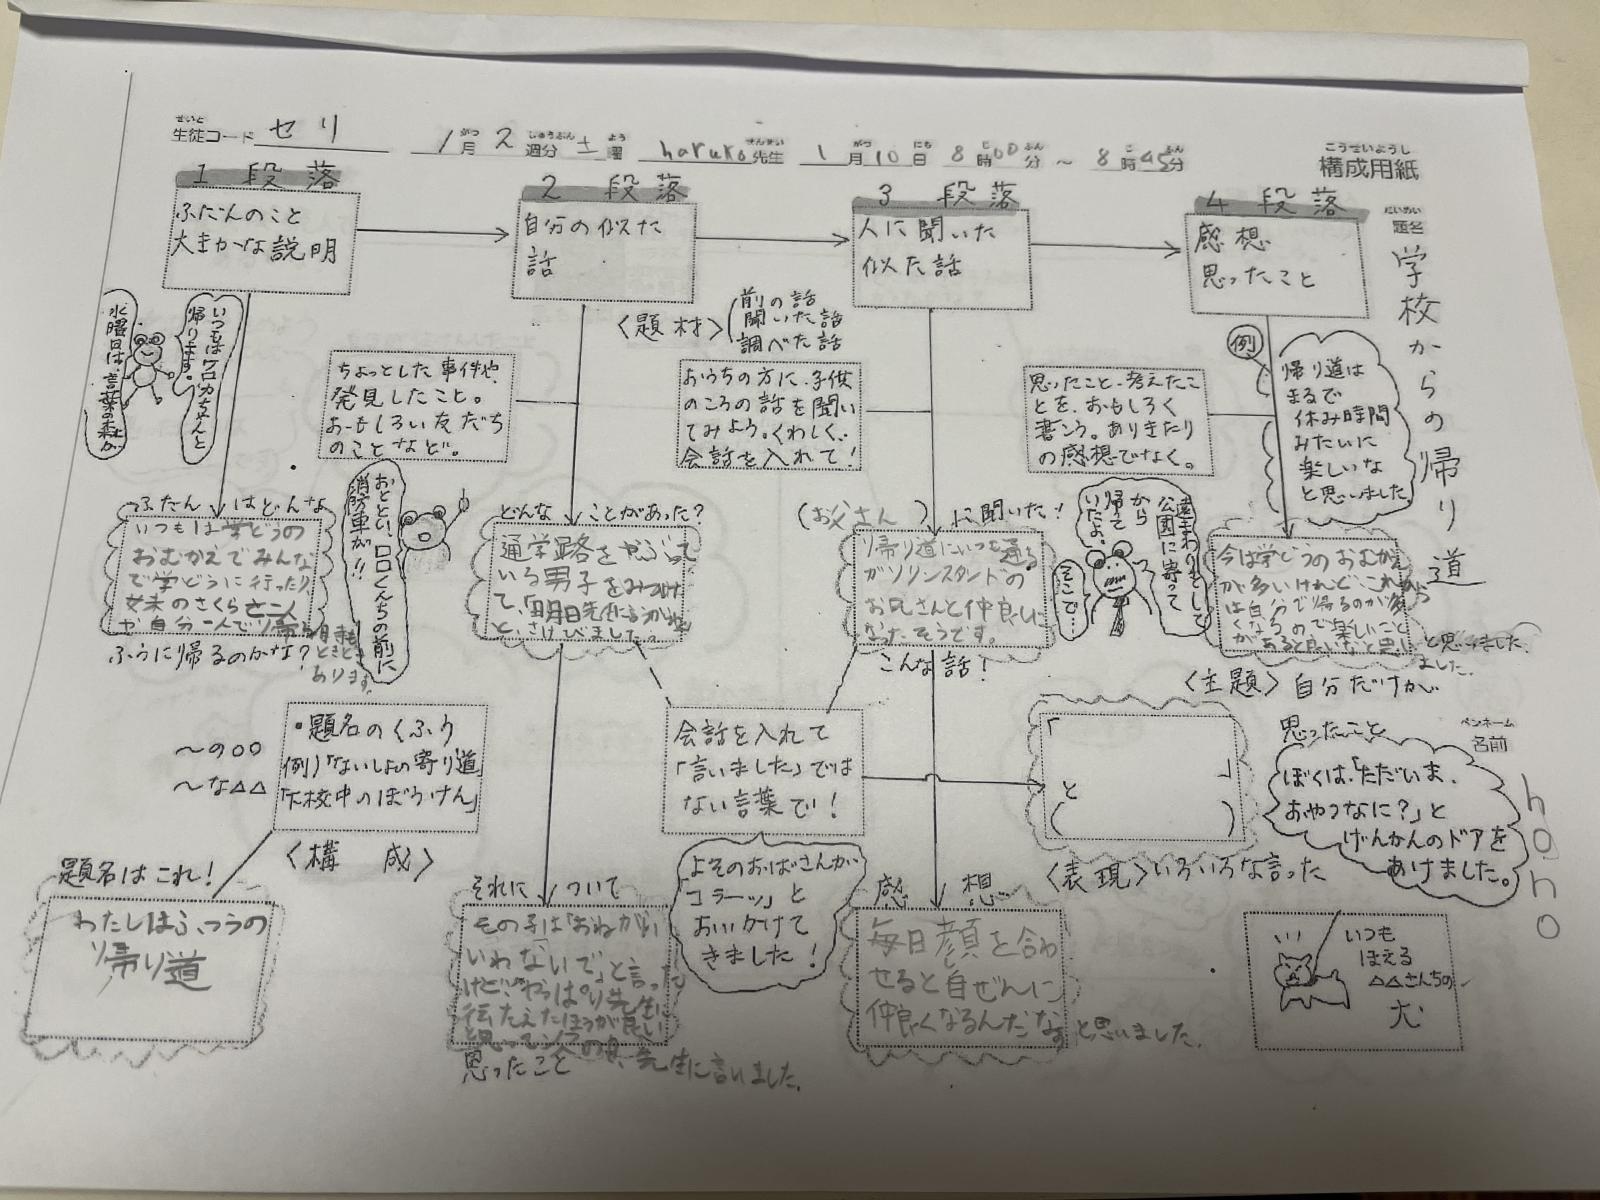 せいと
生徒コード セリ 1月2週分土曜 haruko先生 1月10日8時00分～8時45分
こうせいようし
構成用紙
だいめい
題名
学校からの帰り道
1 段落
ふだんのこと
大まかな説明
2 段落
自分の似た
話
3 段落
人に聞いた
似た話
4 段落
感想
思ったこと
いつもはケロカちゃんと
帰ります。
水曜日は、言葉の森か
〈題材〉
前の話
聞いた話
調べた話
ちょっとした事件や、
発見したこと。
おもしろい友だち
のことなど。
おうちの方に、子供
のころの話を聞い
てみよう。くわしく、
会話を入れて！
思ったこと、考えたこ
とを、おもしろく
書こう。ありきたり
の感想でなく。
例
帰り道は
まるで
休み時間
みたいに
楽しいな
と思いました。
ふだんはどんな
いつもは学どうの
おむかえでみんな
で学どうに行ったり
妹のさくらと二人
や自分一人で帰る時も
ときどき
あります。
ふうに帰るのかな？
おととい、ロロくんちの前に
消防車が！！
どんなことがあった？
通学路をやぶって
いる男子をみつけ
て、「明日先生に
と、さけびました。
（お父さん）に聞いた！
帰り道にいつも通る
ガソリンスタンドの
お兄さんと仲良しに
なったそうです。
こんな話！
遠まわりをして
公園に寄って
から
帰って
いたよ。
そこで…
今は学どうのおむかえ
が多いけれど、これから
は自分で帰るのが多
くなるので楽しいこと
があると良いなと思い
ました。
と思いました。
〈主題〉自分だけが
思ったこと
・題名のくふう
例)「ないしょの寄り道」
「下校中のぼうけん」
～の○○
～な△△
〈構 成〉
会話を入れて
「言いました」では
ない言葉で！
「
」
と
（ ）
〈表現〉いろいろな言った
ペンネーム
名前
hono
ぼくは、「ただいま、
おやつなに？」と
げんかんのドアを
あけました。
題名はこれ！
わたしはふつうの
帰り道
それについて
その子は「おねがい
いわないで」と言った
けど、やっぱり先生に
伝たえたほうが良い
と思って
先生に言いました。
思ったこと
よそのおばさんが
「コラーッ」と
おいかけて
きました！
感 想
毎日顔を合わ
せると自ぜんに
仲良くなるんだな
と思いました。
いつも
ほえる
△△さんちの
犬